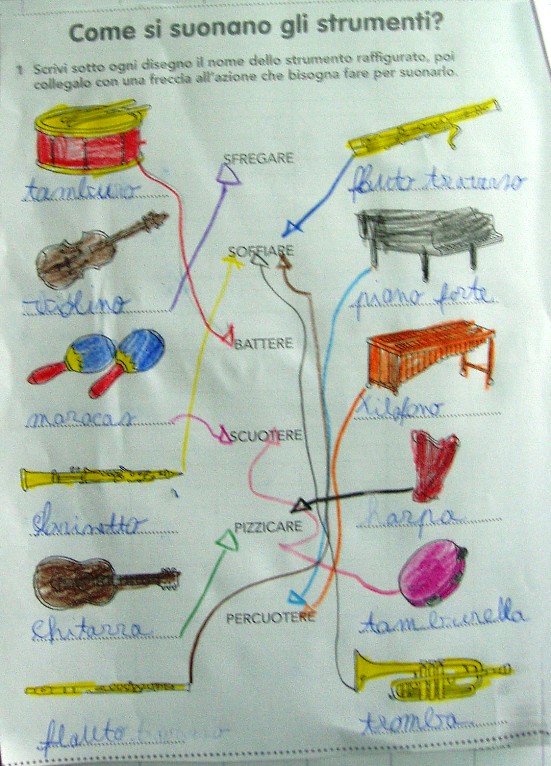 Come si suonano gli strumenti?
1 Scrivi sotto ogni disegno il nome dello strumento raffigurato, poi
collegalo con una freccia all'azione che bisogna fare per suonarlo.
SFREGARE
tamburo
flauto traverso
SOFFIARE
violino
piano forte
BATTERE
maracas
xilofono
SCUOTERE
clarinetto
PIZZICARE
harpa
chitarra
PERCUOTERE
tamburella
flauto
tromba